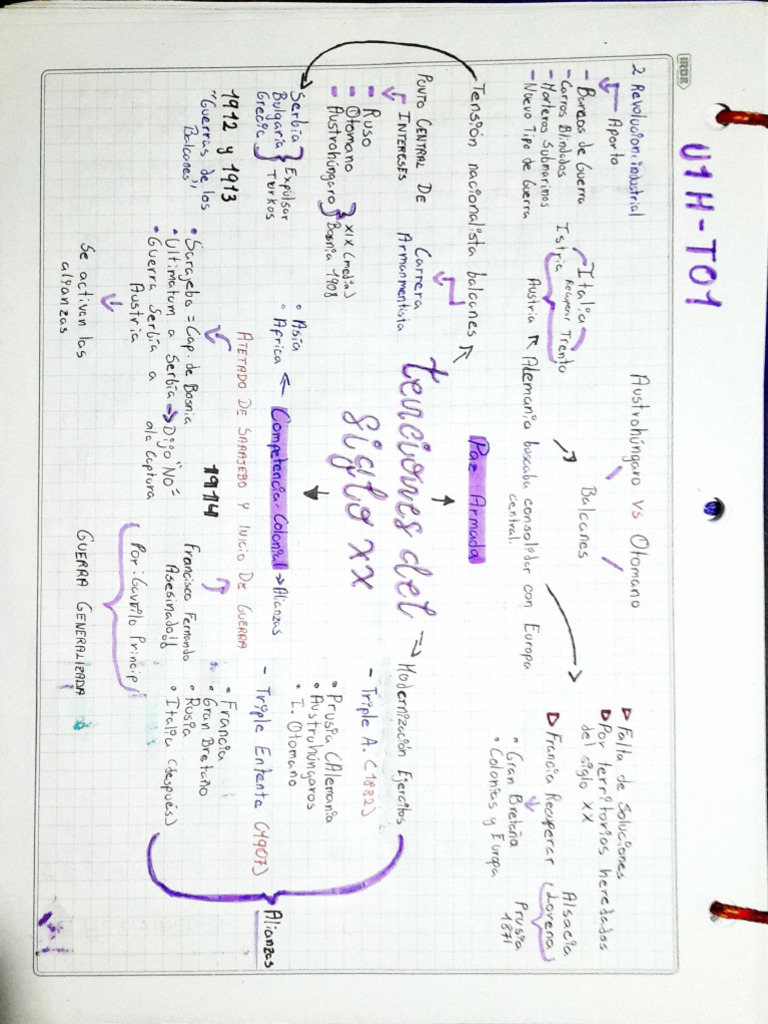 U1H-T01
2 Revolucion: industrial
Aporto
- Barcos de Guerra
- Carros Blindados
- Morteros Submarinos
- Nuevo Tipo de Guerra
Italia
Recuperar Trento
Istria
Austria
Austrohúngaro vs Otomano
Balcanes
Alemania buscaba consolidar con Europa
central.
Falta de soluciones
Por territorios heredados
del siglo XX
Francia Recuperar
Alsacia
Lorena
Prusia
1871
Gran Bretaña
• Colonias y Europa
Tensión nacionalista balcanes
Paz Armada
PUNTO CENTRAL DE
INTERESES
- Ruso
- Otomano
- Austrohúngaro
XIX (media)
Bosnia 1908
Carrera
Armanmentista
tenciones del
siglo xx
Modernización Ejercitos
Serbia
Bulgaria
Grecia
Expulsar
Turkos
1912 y 1913
"Guerras de los
Balcanes"
• Asia
• Africa
Competencia Colonial
Alianzas
- Triple A. (1882)
• Prusia (Alemania
• Austrohúngaros
• I. Otomano
- Triple Entente (1907)
• Francia
• Gran Bretaño
• Rusia
• Italia (después)
Alianzas
ATETADO DE SARAJEBO Y INICIO DE GUERRA
1914
• Sarajebo = Cap. de Bosnia
• Ultimatum a Serbia → Dijo "No"
a la Captura
• Guerra Serbia a
Austria
Francisco Fernando
Asesinado!!
Por: Gavrilo Princip
Se activan las
alianzas
GUERRA GENERALIZADA